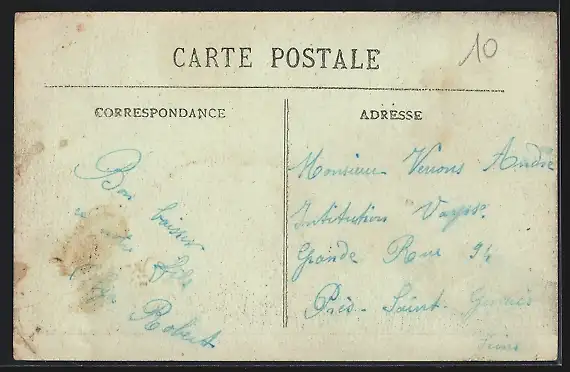 CARTE POSTALE
10
CORRESPONDANCE
Bon baiser
Fils
Robert
ADRESSE
Monsieur Verrons André
Intitution Vaysse
Grande Rue 94
Prés-Saint-Gervais